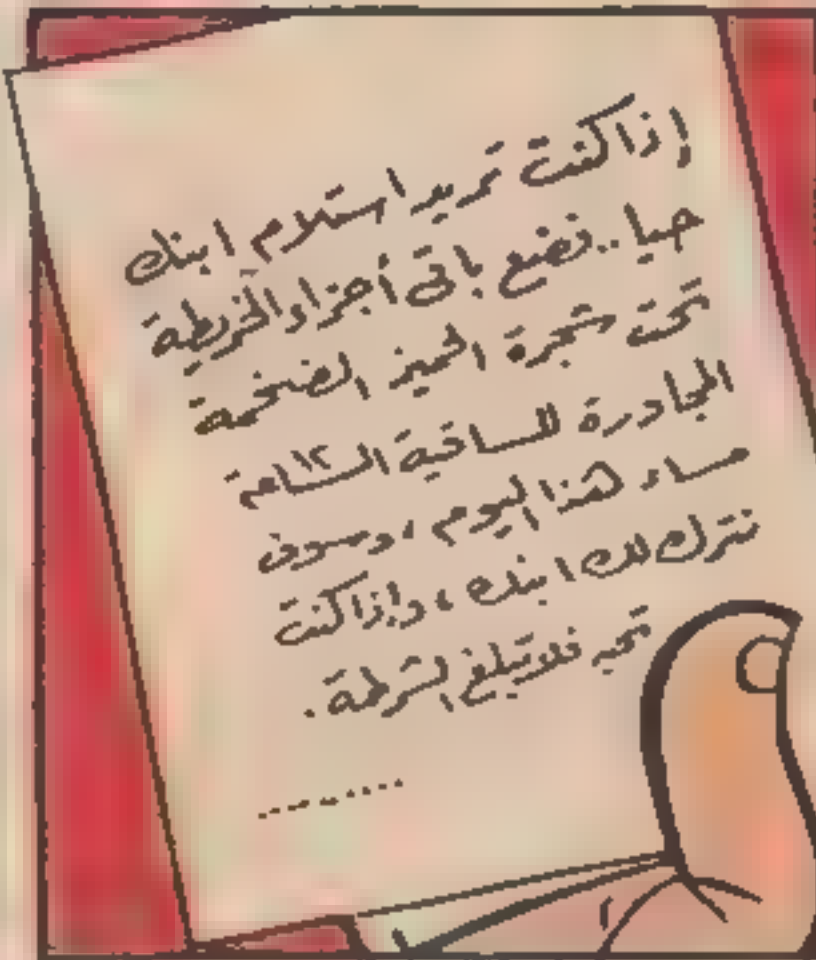 إذا كنت تريد استلام ابنك
حيا.. نضع باقى أجزاء الخريطة
تحت شجرة الجميز الضخمة
المجاورة للساقية الساعة ١٢
مساء هذا اليوم ، وسوف
نترك لك ابنك ، وإذا كنت
تحبه فلا تبلغ الشرطة .
.........